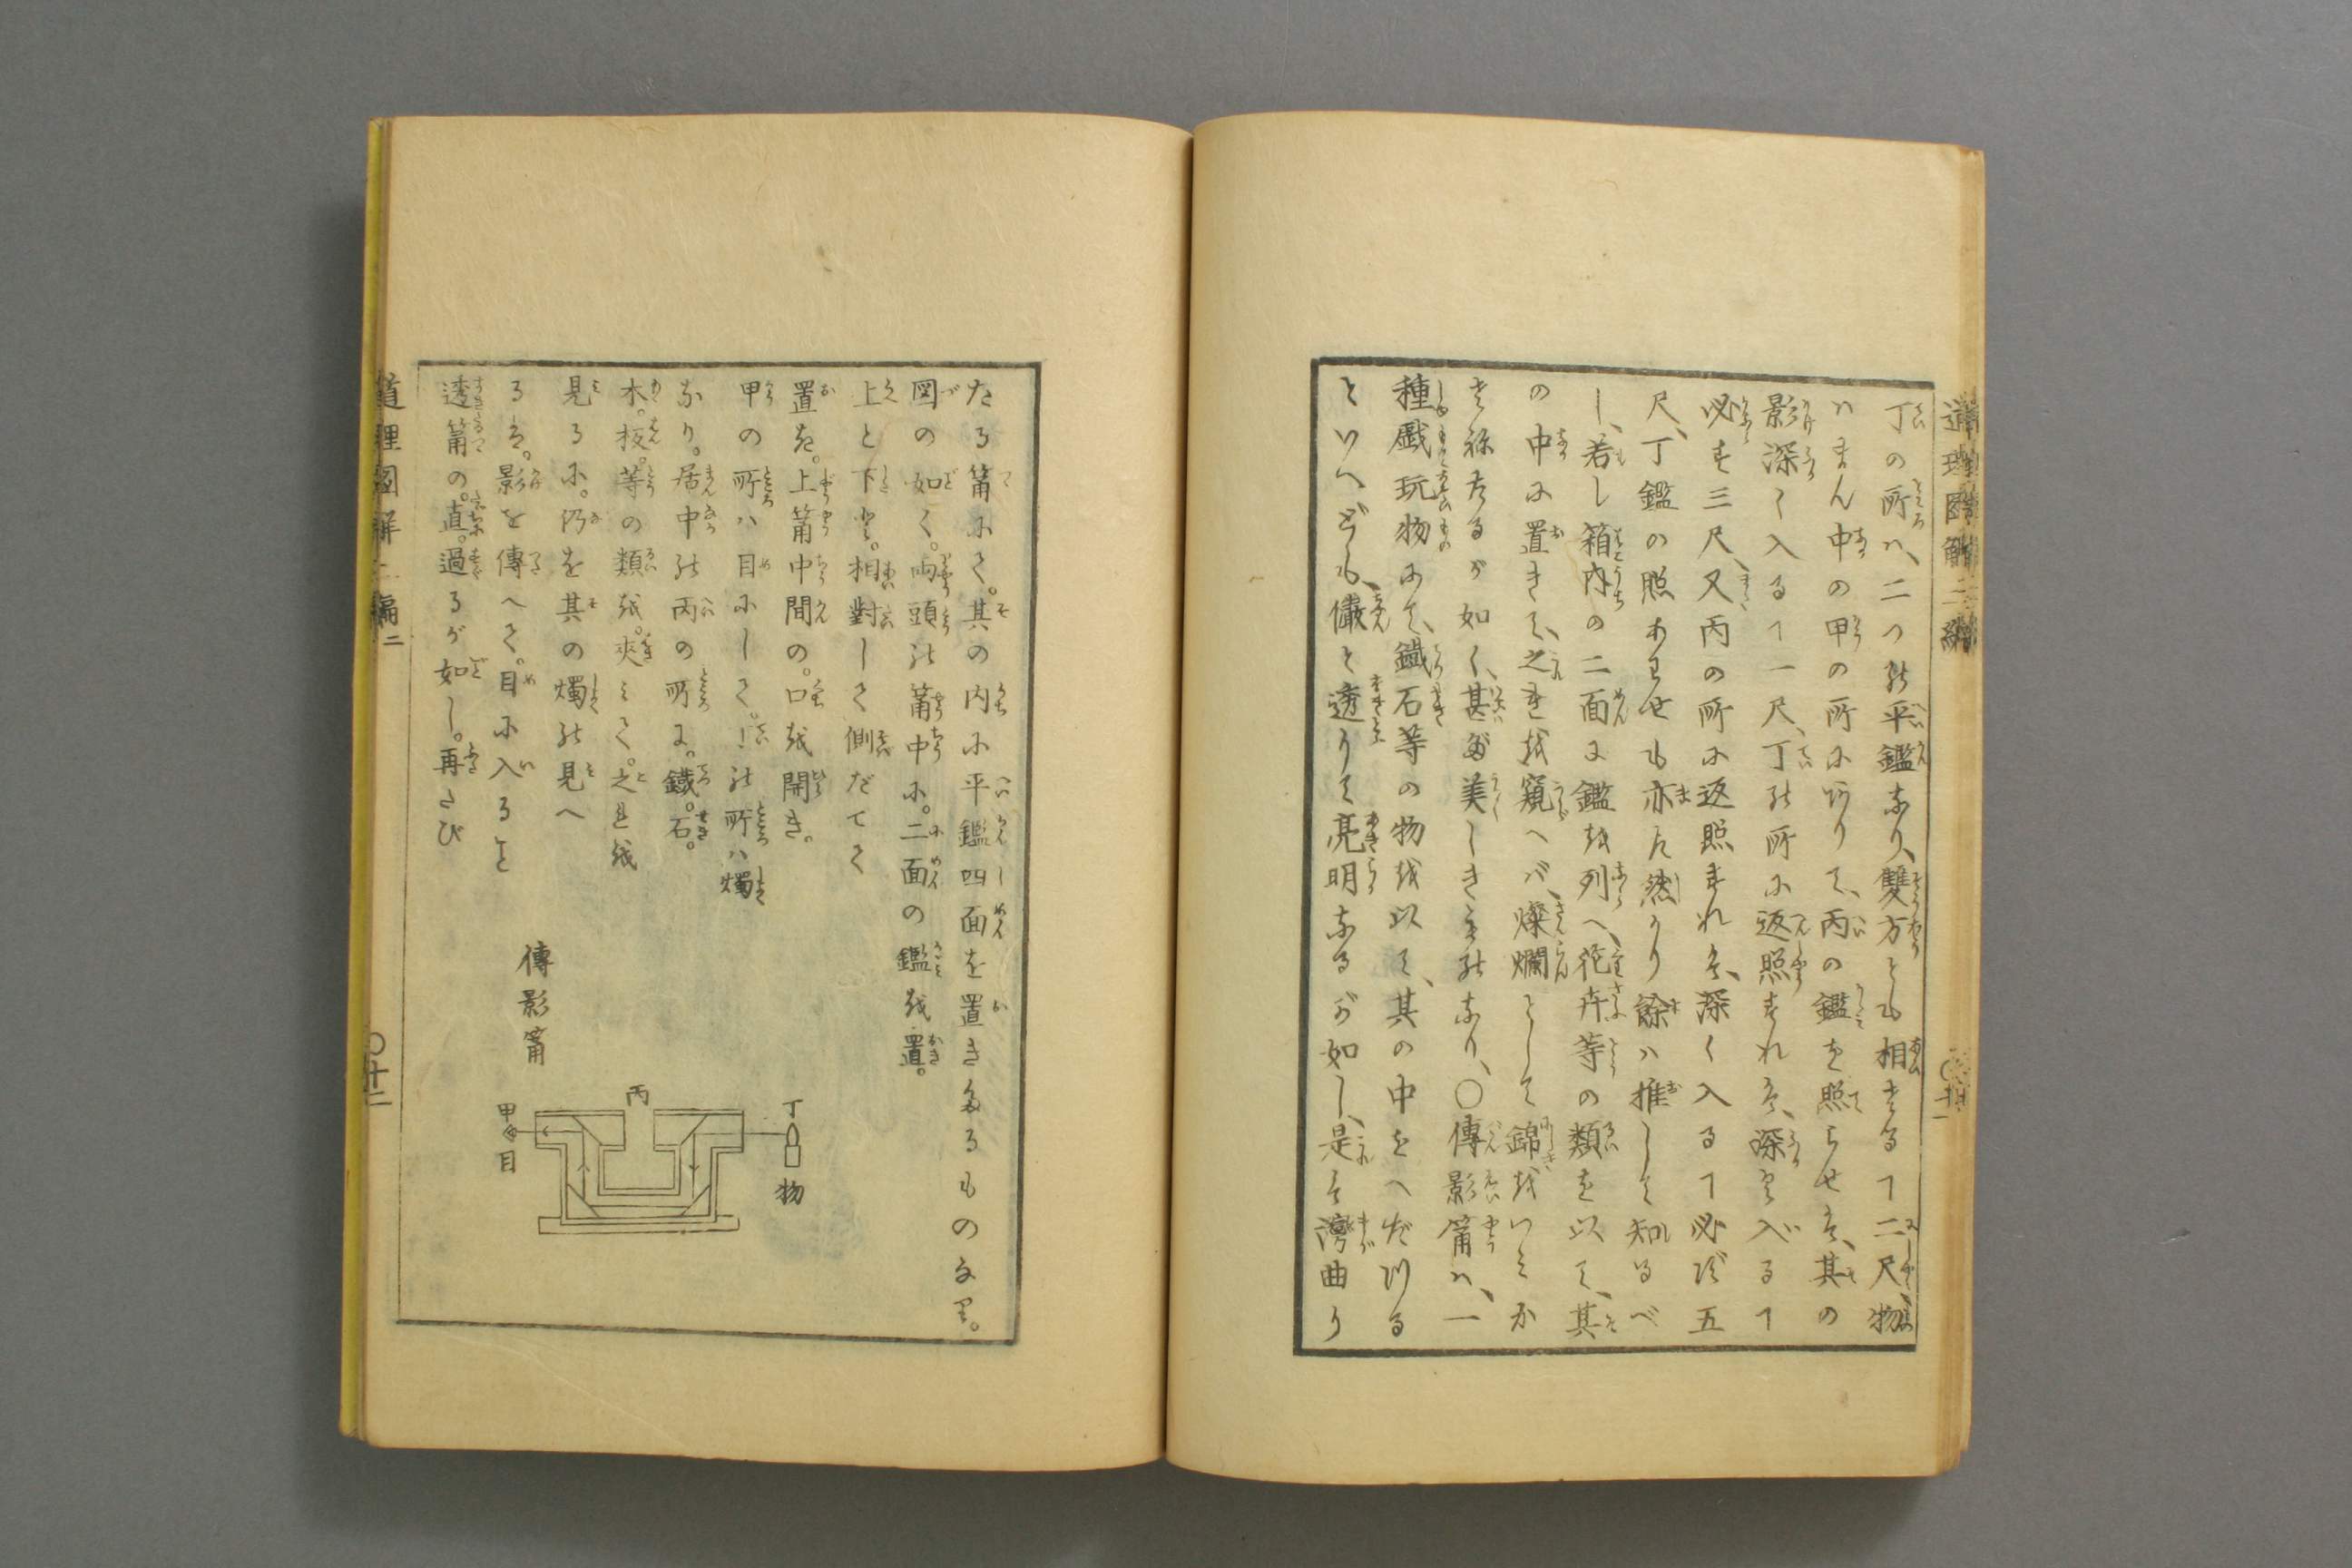 道理図解二編
丁の所ハ、二つ能平鑑なり、雙方とも相さるヿ二尺、物
ハまん中の甲の所にありて、丙の鑑を照らせバ、其の
影深く入るヿ一尺、丁能所に返照すれバ、深く入るヿ
必ず三尺、又丙の所に返照すれバ、深く入るヿ必ず五
尺、丁鑑の照あわせも亦た然り餘ハ推して知るべ
し、若し箱内の二面に鑑を列へ、花卉等の類を以て、其
の中に置きて、之れを窺へバ、燦爛として錦をいとか
さねたるが如く、甚だ美しきもの能なり、〇傳影筩ハ、一
種戯玩物にて、鐵石等の物を以て、其の中をへだつる
といへども、儼と透りて亮明なるが如し、是そ灣曲り
たる筩にて。其の内に平鑑四面を置きたるものなり。
図の如く。両頭能筩中に。二面の鑑を置。
上と下と。相對して側だてて
置き。上筩中間の。口を開き。
甲の所ハ目にして。丁能所ハ燭
なり。居中能丙の所に。鐵。石。
木。板。等の類を。夾みて。之れを
見るに。仍を其の燭能見へ
るハ。影を傳へて。目に入ること
透筩の。直。過るが如し。再たび
傳影筩
丙
丁
物
甲
目
道理図解二編二
〇十二